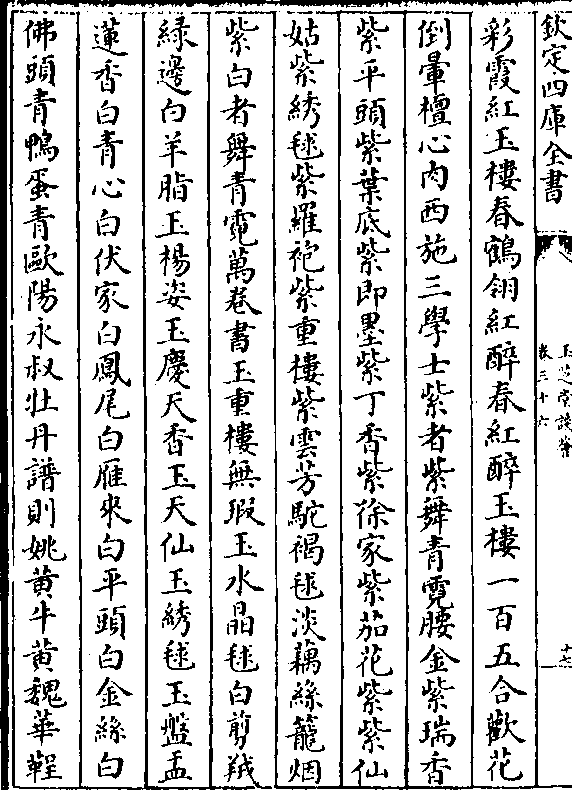 欽定四庫全書
玉芝堂談薈
卷三十六
十七
彩霞紅玉樓春鶴翎紅醉春紅醉玉樓一百五合歡花
倒暈檀心肉西施三學士紫者紫舞青霓腰金紫瑞香
紫平頭紫葉底紫即墨紫丁香紫徐家紫茄花紫紫仙
姑紫綉毬紫羅袍紫重樓紫雲芳駝褐毬淡藕絲籠烟
紫白者舞青霓萬卷書玉重樓無瑕玉水晶毬白剪羢
緑邊白羊脂玉楊姿玉慶天香玉天仙玉綉毬玉盤盂
蓮香白青心白伏家白鳳尾白雁來白平頭白金絲白
佛頭青鴨蛋青歐陽永叔牡丹譜則姚黃牛黃魏華鞓